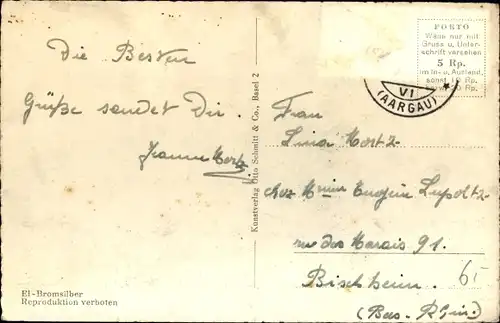 Die Besten
Grüße sendet Dir.
Jeanne
Kunstverlag Otto Schmitt & Co., Basel 2
El-Bromsilber
Reproduktion verboten
PORTO
Wenn nur mit
Gruss u. Unter-
schrift versehen
5 Rp.
im In- u. Ausland,
sonst 10 Rp.
20 Rp.
VI
(AARGAU)
Frau
Lina
chez Mme Eugène
rue des Marais 91.
Bischheim.
(Bas-Rhin)
6.-